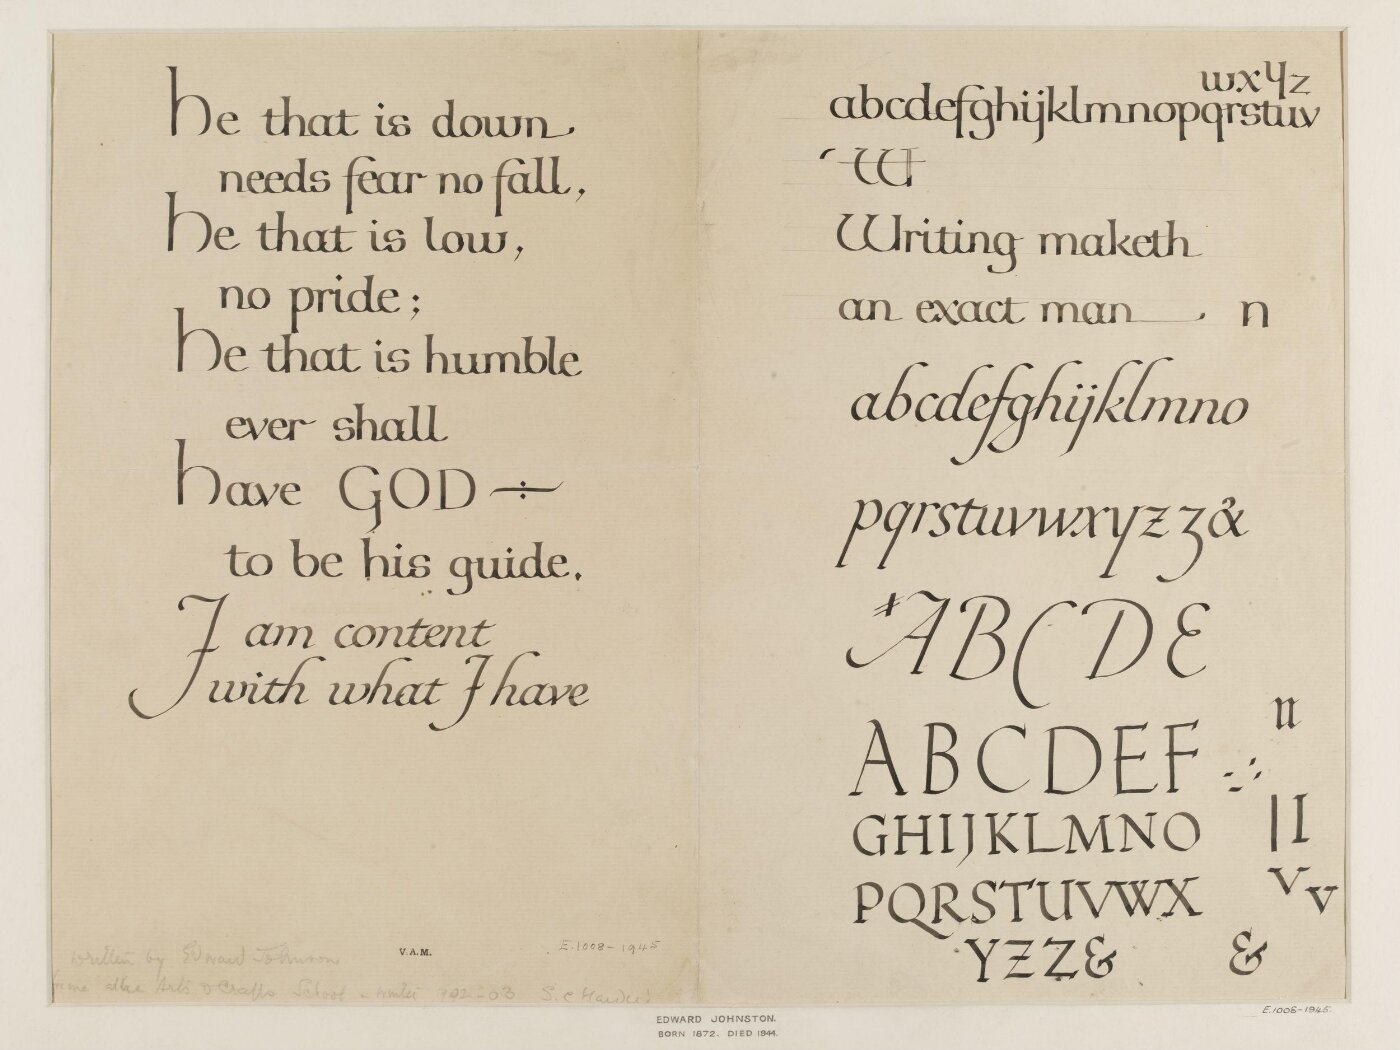 he that is down
needs fear no fall,
he that is low,
no pride;
he that is humble
ever shall
have GOD ÷
to be his guide.
I am content
with what I have
written by Edward Johnston
at the Arts & Crafts School - winter 1902-03
V.A.M.
E.1008-1945
wxyz
abcdefghijklmnopqrstuv
W
Writing maketh
an exact man n
abcdefghijklmno
pqrstuvwxyzz&
ABCDE
n
ABCDEF
I
GHIJKLMNO
PQRSTUVWX
V v
YZZ& &
E.1008-1945.
EDWARD JOHNSTON.
BORN 1872. DIED 1944.